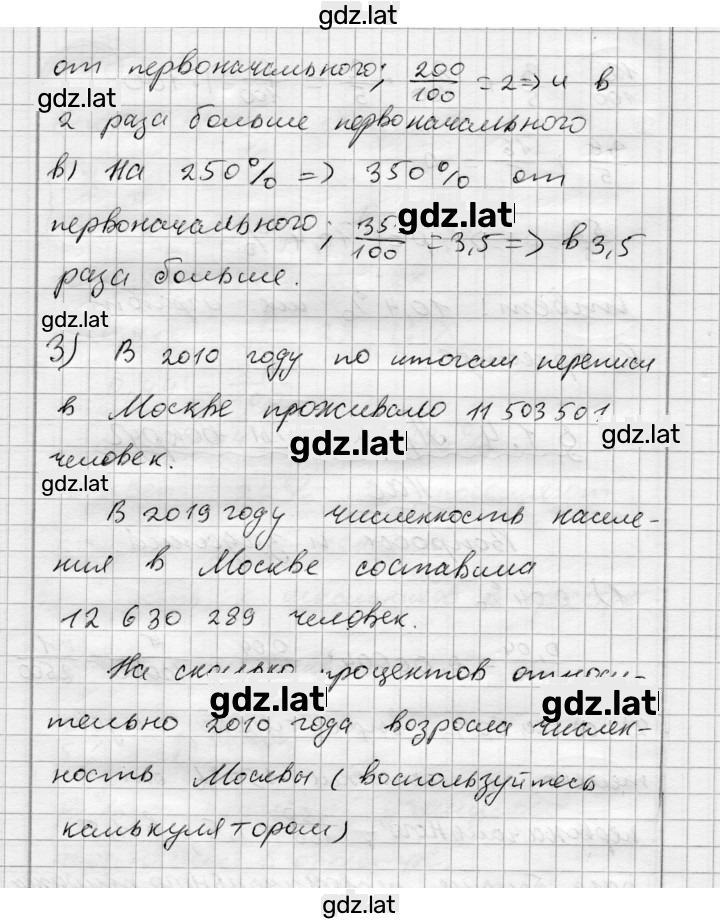 gdz.lat
от первоначального; 200/100 = 2 => и в
gdz.lat
2 раза больше первоначального
в) На 250% => 350% от
gdz.lat
первоначального; 35/100 = 3,5 => в 3,5
раза больше.
gdz.lat
3) В 2010 году по итогам переписи
в Москве проживало 11 503 501
gdz.lat
gdz.lat
человек.
gdz.lat
В 2019 году численность населе-
ния в Москве составила
12 630 289 человек.
На сколько процентов относи-
gdz.lat
gdz.lat
тельно 2010 года возросла числен-
ность Москвы (воспользуйтесь
калькулятором)
gdz.lat